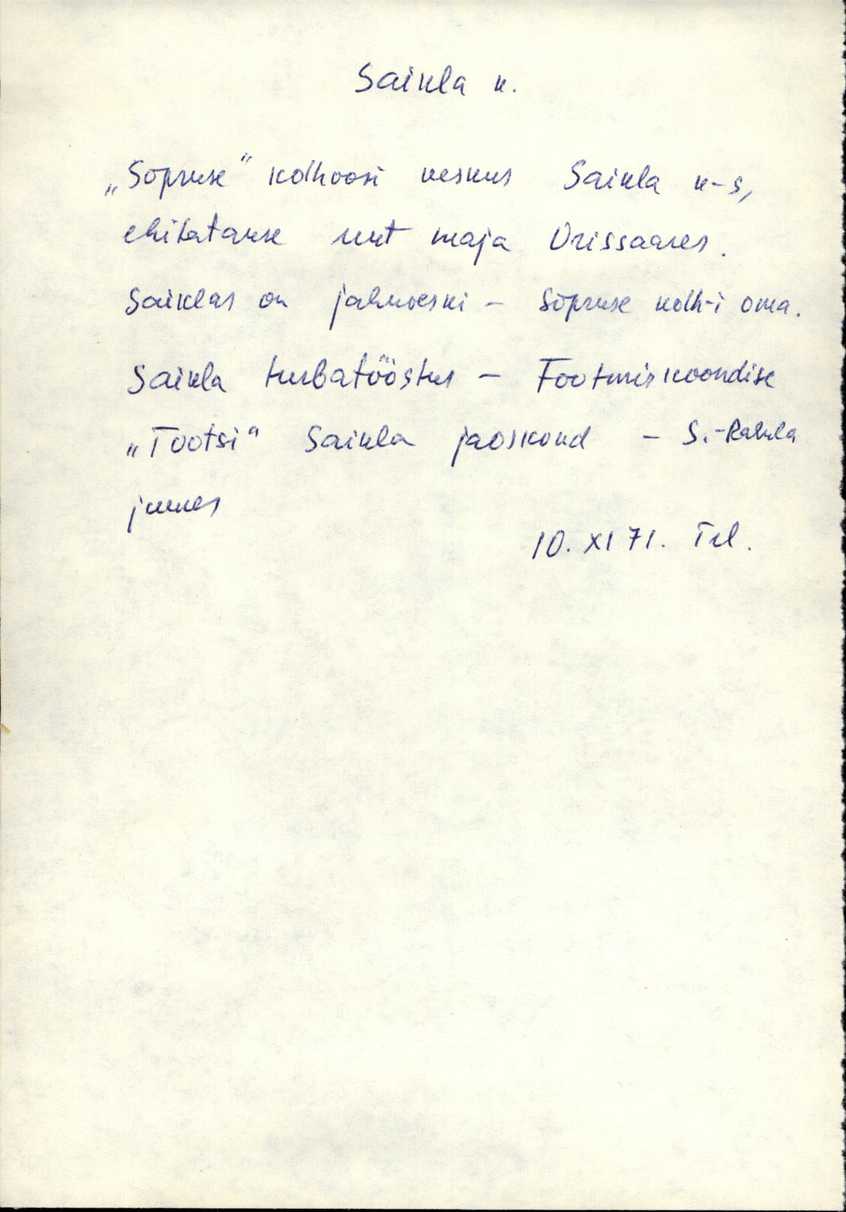 Saikla k.
„Sõpruse" kolhoosi keskus Saikla k-s,
ehitatakse uut maja Orissaares.
Saiklas on jahuveski – Sõpruse kolh-i oma.
Saikla turbatööstus – Tootmiskoondise
„Tootsi" Saikla jaoskond – S.-Rahula
juures
10. XI 71. Tul.